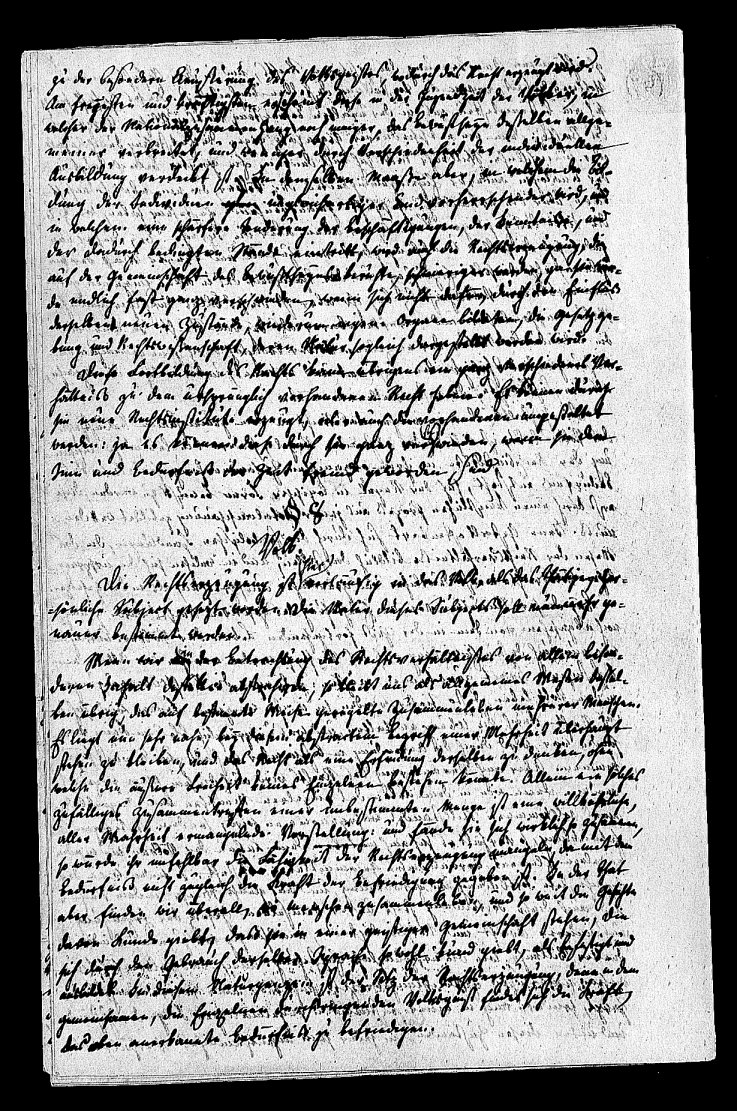 zu der besondern Äußerung des Volksgeistes, wodurch das Recht erzeugt wird.
Am freyesten und kräftigsten erscheint diese in der Jugendzeit der Völker, in
welcher der Nationalzusammenhang noch inniger, das Bewußtseyn desselben allge-
meiner verbreitet, und weniger durch Verschiedenheit der individuellen
Ausbildung verdeckt ist. In demselben Maaße aber, in welchem die Bil-
dung der Individuen ungleichartiger und vorherrschender wird, und
in welchem eine schärfere Sonderung der Beschäftigungen, der Kenntnisse, und
der dadurch bedingten Stände eintritt, wird auch die Rechtserzeugung, die
auf der Gemeinschaft des Bewußtseyns beruht, schwieriger werden; ja sie wür-
de endlich fast ganz verschwinden, wenn sich nicht dafür, durch den Einfluß
derselben neuen Zustände, wiederum eigene Organe bildeten, die Gesetzge-
bung und Rechtswissenschaft, deren Natur sogleich dargestellt werden wird.
Diese Fortbildung des Rechts kann übrigens ein ganz verschiedenes Ver-
hältniß zu dem ursprünglich vorhandenen Recht haben. Es können durch
sie neue Rechtsinstitute erzeugt, oder auch die vorhandenen umgestaltet
werden: ja es können diese durch sie ganz verschwinden, wenn sie dem
Sinn und Bedürfniß der Zeit fremd geworden sind.
§ 8
Volk
Die Rechtserzeugung ist hier vorläufig in das Volk, als das thätige, per-
sönliche Subject gesetzt worden. Die Natur dieses Subjects soll nunmehr ge-
nauer bestimmt werden.
Wenn wir in der Betrachtung des Rechtsverhältnisses von allem beson-
deren Inhalt desselben abstrahiren, so bleibt uns als allgemeines Wesen dessel-
ben übrig, das auf bestimmte Weise geregelte Zusammenleben mehrerer Menschen.
Es liegt nun sehr nahe, bey diesem abstracten Begriff einer Mehrheit überhaupt
stehen zu bleiben, und das Recht als eine Erfindung derselben zu denken, ohne
welche die äußere Freiheit keines Einzelnen bestehen könnte. Allein ein solches
zufälliges Zusammentreffen einer unbestimmten Menge ist eine willkührliche,
aller Wahrheit ermangelnde Vorstellung: und fände sie sich wirklich so zusammen,
so würde ihr unfehlbar die Fähigkeit der Rechtserzeugung mangeln, da mit dem
Bedürfniß nicht zugleich die Kraft der Befriedigung gegeben ist. In der That
aber finden wir überall, wo Menschen zusammenleben, und so weit die Geschichte
davon Kunde giebt, daß sie in einer geistigen Gemeinschaft stehen, die
sich durch den Gebrauch derselben Sprache sowohl kund giebt, als befestigt und
ausbildet. In diesem Naturganzen ist der Sitz der Rechtserzeugung, denn in dem
gemeinsamen, die Einzelnen durchdringenden Volksgeist findet sich die Kraft,
das oben anerkannte Bedürfniß zu befriedigen.